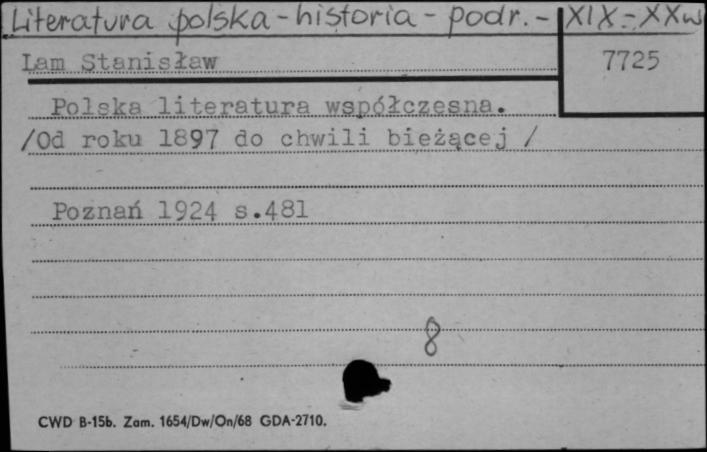 Literatura polska - historia - podr. - XIX - XXw
Lam Stanisław
7725
Polska literatura współczesna.
/Od roku 1897 do chwili bieżącej /
Poznań 1924 s.481
8
CWD B-15b. Zam. 1654/Dw/On/68 GDA-2710.